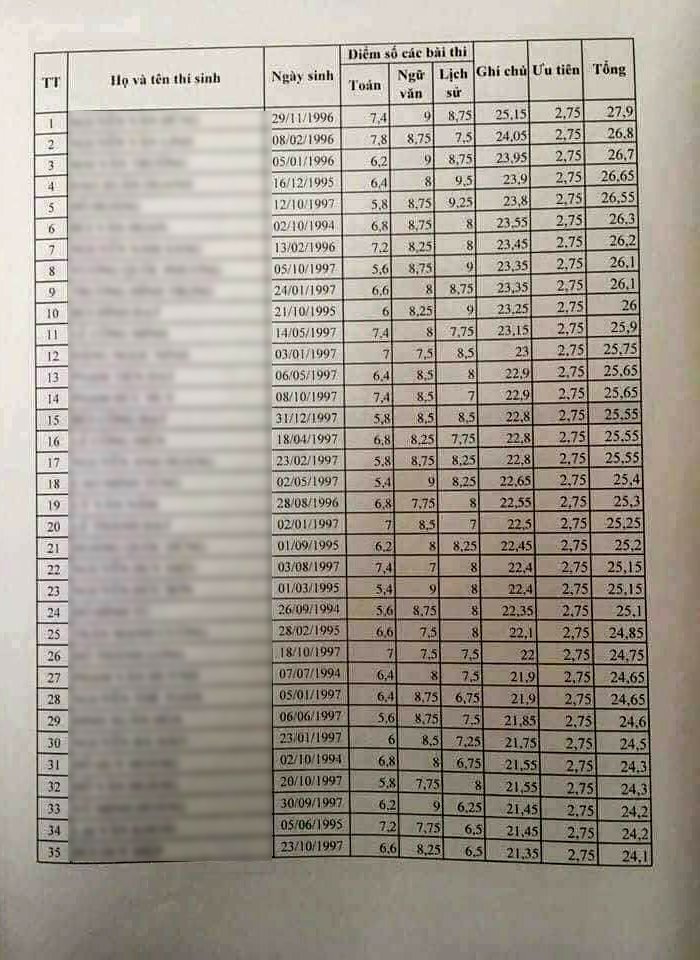 TT Họ và tên thí sinh Ngày sinh Điểm số các bài thi Ghi chú Ưu tiên Tổng
Toán Ngữ văn Lịch sử
1 29/11/1996 7,4 9 8,75 25,15 2,75 27,9
2 08/02/1996 7,8 8,75 7,5 24,05 2,75 26,8
3 05/01/1996 6,2 9 8,75 23,95 2,75 26,7
4 16/12/1995 6,4 8 9,5 23,9 2,75 26,65
5 12/10/1997 5,8 8,75 9,25 23,8 2,75 26,55
6 02/10/1994 6,8 8,75 8 23,55 2,75 26,3
7 13/02/1996 7,2 8,25 8 23,45 2,75 26,2
8 05/10/1997 5,6 8,75 9 23,35 2,75 26,1
9 24/01/1997 6,6 8 8,75 23,35 2,75 26,1
10 21/10/1995 6 8,25 9 23,25 2,75 26
11 14/05/1997 7,4 8 7,75 23,15 2,75 25,9
12 03/01/1997 7 7,5 8,5 23 2,75 25,75
13 06/05/1997 6,4 8,5 8 22,9 2,75 25,65
14 08/10/1997 7,4 8,5 7 22,9 2,75 25,65
15 31/12/1997 5,8 8,5 8,5 22,8 2,75 25,55
16 18/04/1997 6,8 8,25 7,75 22,8 2,75 25,55
17 23/02/1997 5,8 8,75 8,25 22,8 2,75 25,55
18 02/05/1997 5,4 9 8,25 22,65 2,75 25,4
19 28/08/1996 6,8 7,75 8 22,55 2,75 25,3
20 02/01/1997 7 8,5 7 22,5 2,75 25,25
21 01/09/1995 6,2 8 8,25 22,45 2,75 25,2
22 03/08/1997 7,4 7 8 22,4 2,75 25,15
23 01/03/1995 5,4 9 8 22,4 2,75 25,15
24 26/09/1994 5,6 8,75 8 22,35 2,75 25,1
25 28/02/1995 6,6 7,5 8 22,1 2,75 24,85
26 18/10/1997 7 7,5 7,5 22 2,75 24,75
27 07/07/1994 6,4 8 7,5 21,9 2,75 24,65
28 05/01/1997 6,4 8,75 6,75 21,9 2,75 24,65
29 06/06/1997 5,6 8,75 7,5 21,85 2,75 24,6
30 23/01/1997 6 8,5 7,25 21,75 2,75 24,5
31 02/10/1994 6,8 8 6,75 21,55 2,75 24,3
32 20/10/1997 5,8 7,75 8 21,55 2,75 24,3
33 30/09/1997 6,2 9 6,25 21,45 2,75 24,2
34 05/06/1995 7,2 7,75 6,5 21,45 2,75 24,2
35 23/10/1997 6,6 8,25 6,5 21,35 2,75 24,1